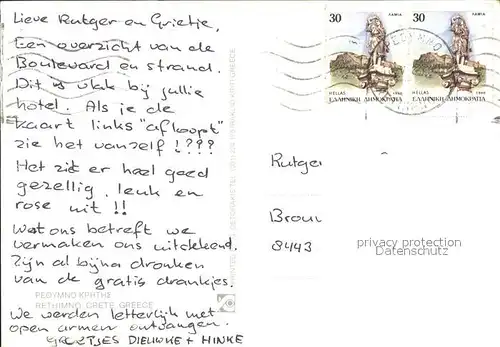 Lieve Rutger en Grietje,
Een overzicht van de
Boulevard en strand.
Dit is vlak bij jullie
hotel. Als je de
kaart links "afloopt"
zie het vanzelf !???
Het ziet er heel goed
gezellig, leuk en
rose uit !!
Wat ons betreft we
vermaken ons uitstekend.
Zijn al bijna dronken
van de gratis drankjes.
ΡΕΘΥΜΝΟ ΚΡΗΤΗΣ
RETHIMNO CRETE GREECE
We worden letterlijk met
open armen ontvangen.
GROETJES DIEUWKE + HINKE
30 ΛΑΜΙΑ
HELLAS 1988
ΕΛΛΗΝΙΚΗ ΔΗΜΟΚΡΑΤΙΑ
30 ΛΑΜΙΑ
HELLAS 1988
ΕΛΛΗΝΙΚΗ ΔΗΜΟΚΡΑΤΙΑ
Rutger
Brouw
8443
privacy protection
Datenschutz